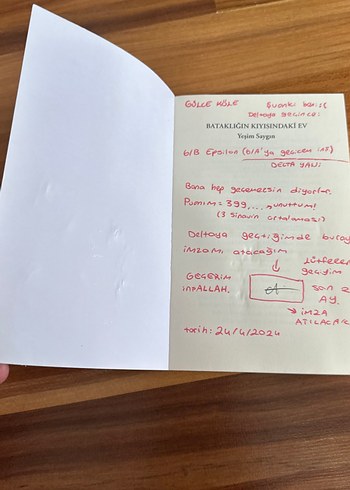 GÜLCE KÖLE
Şuanki
Deltaya
BATAKLIĞIN KIYISINDAKİ EV
Yeşim Saygın
6/B Epsilon (6/A'ya geçicem inş)
DELTA YANİ
Bana hep geçemezsin diyorlar.
Puanım = 399,... unuttum!
(3 sınavın ortalaması)
Deltaya geçtiğimde buray
imzamı atacağım
lütfeeen
geçiyim
GEÇERİM
İNŞALLAH.
son 2
AY.
İMZA
ATILACAK
tarih: 24/4/2024